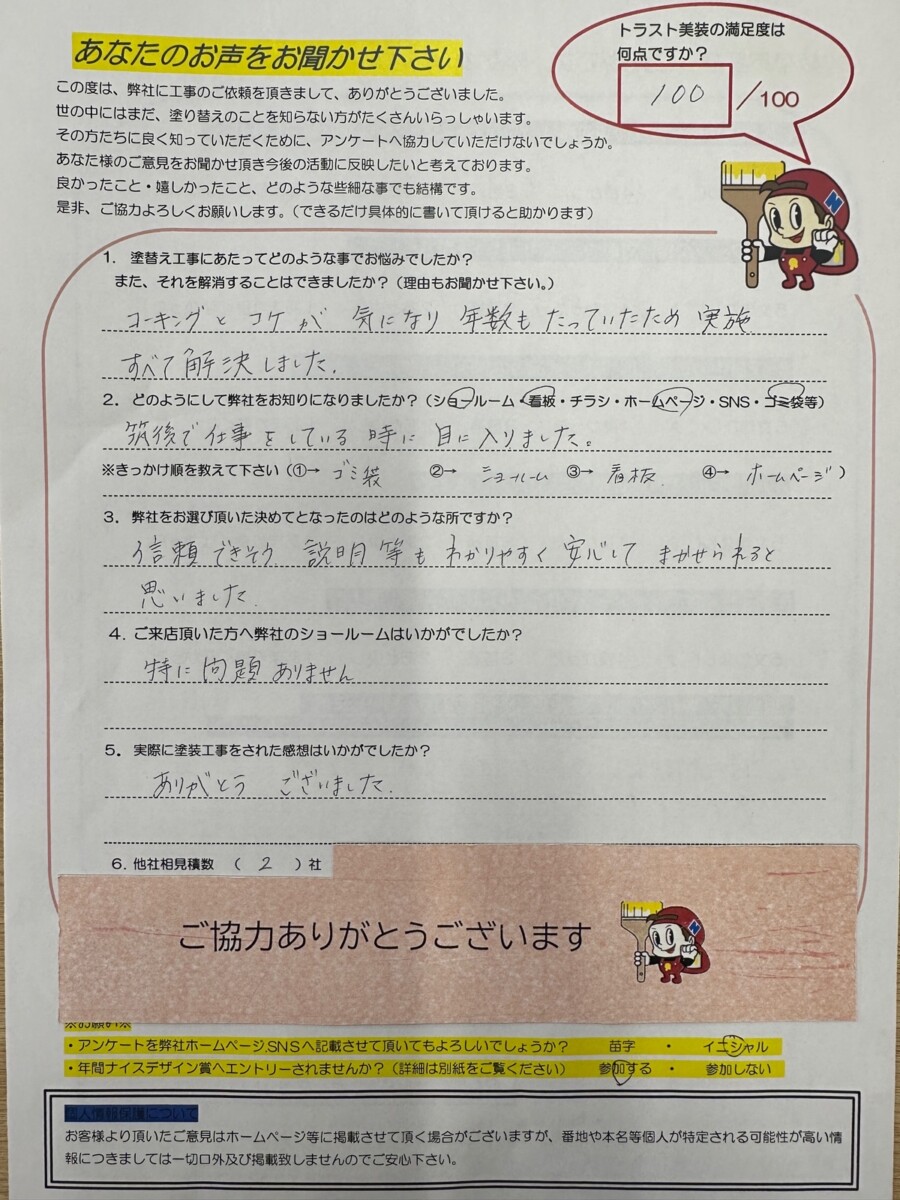 あなたのお声をお聞かせ下さい
トラスト美装の満足度は
何点ですか?
100 /100
この度は、弊社に工事のご依頼を頂きまして、ありがとうございました。
世の中にはまだ、塗り替えのことを知らない方がたくさんいらっしゃいます。
その方たちに良く知っていただくために、アンケートへ協力していただけないでしょうか。
あなた様のご意見をお聞かせ頂き今後の活動に反映したいと考えております。
良かったこと・嬉しかったこと、どのような些細な事でも結構です。
是非、ご協力よろしくお願いします。(できるだけ具体的に書いて頂けると助かります)
N
1. 塗替え工事にあたってどのような事でお悩みでしたか?
また、それを解消することはできましたか?(理由もお聞かせ下さい。)
コーキングとコケが 気になり 年数も たっていたため 実施
すべて解決しました.
2. どのようにして弊社をお知りになりましたか?(ショールーム・看板・チラシ・ホームページ・SNS・ゴミ袋等)
筑後で仕事をしている時に 目に入りました。
※きっかけ順を教えて下さい(①→ ゴミ袋 ②→ ショールーム ③→ 看板. ④→ ホームページ )
3. 弊社をお選び頂いた決めてとなったのはどのような所ですか?
信頼できそう. 説明等も わかりやすく 安心して まかせられると
思いました.
4. ご来店頂いた方へ弊社のショールームはいかがでしたか?
特に問題ありません
5. 実際に塗装工事をされた感想はいかがでしたか?
ありがとう ございました.
6. 他社相見積数 ( 2 )社
ご協力ありがとうございます
N
※お願い※
・アンケートを弊社ホームページ,SNSへ記載させて頂いてもよろしいでしょうか? 苗字 ・ イニシャル
・年間ナイスデザイン賞へエントリーされませんか?(詳細は別紙をご覧ください) 参加する ・ 参加しない
個人情報保護について
お客様より頂いたご意見はホームページ等に掲載させて頂く場合がございますが、番地や本名等個人が特定される可能性が高い情
報につきましては一切口外及び掲載致しませんのでご安心下さい。